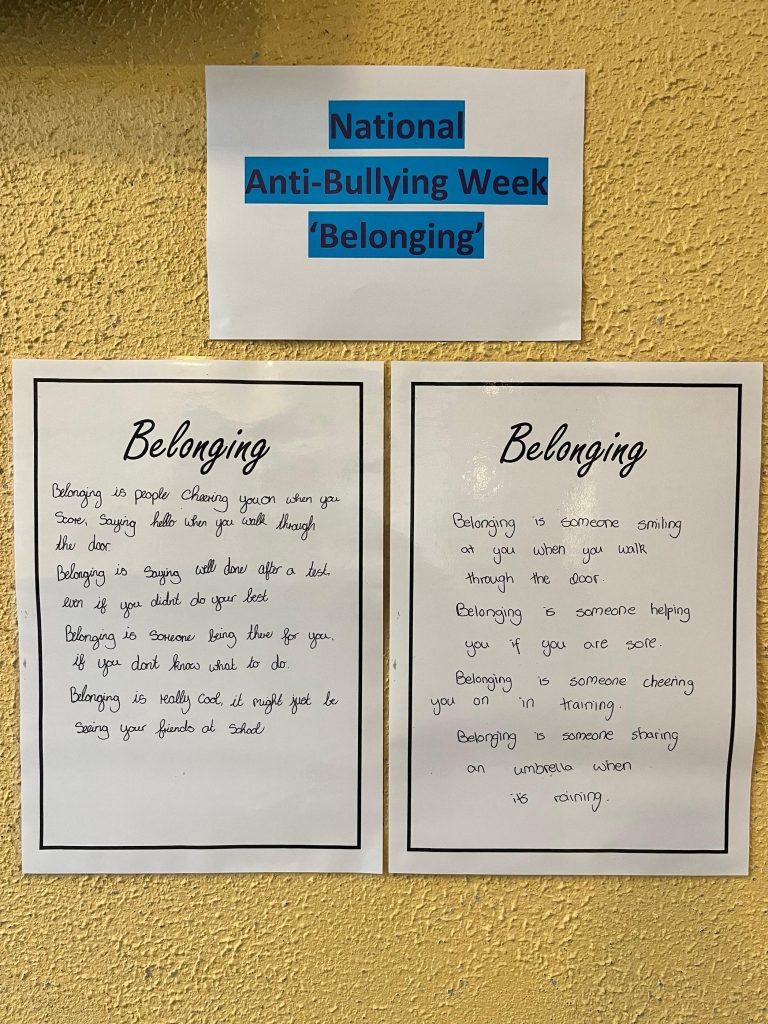 National
Anti-Bullying Week
‘Belonging’
Belonging
Belonging is people cheering you on when you
Score, Saying hello when you walk through
the door.
Belonging is saying well done after a test,
even if you didn't do your best
Belonging is someone being there for you,
if you don't know what to do.
Belonging is really cool, it might just be
seeing your friends at school
Belonging
Belonging is someone smiling
at you when you walk
through the door.
Belonging is someone helping
you if you are sore.
Belonging is someone cheering
you on in training.
Belonging is someone sharing
an umbrella when
its raining.